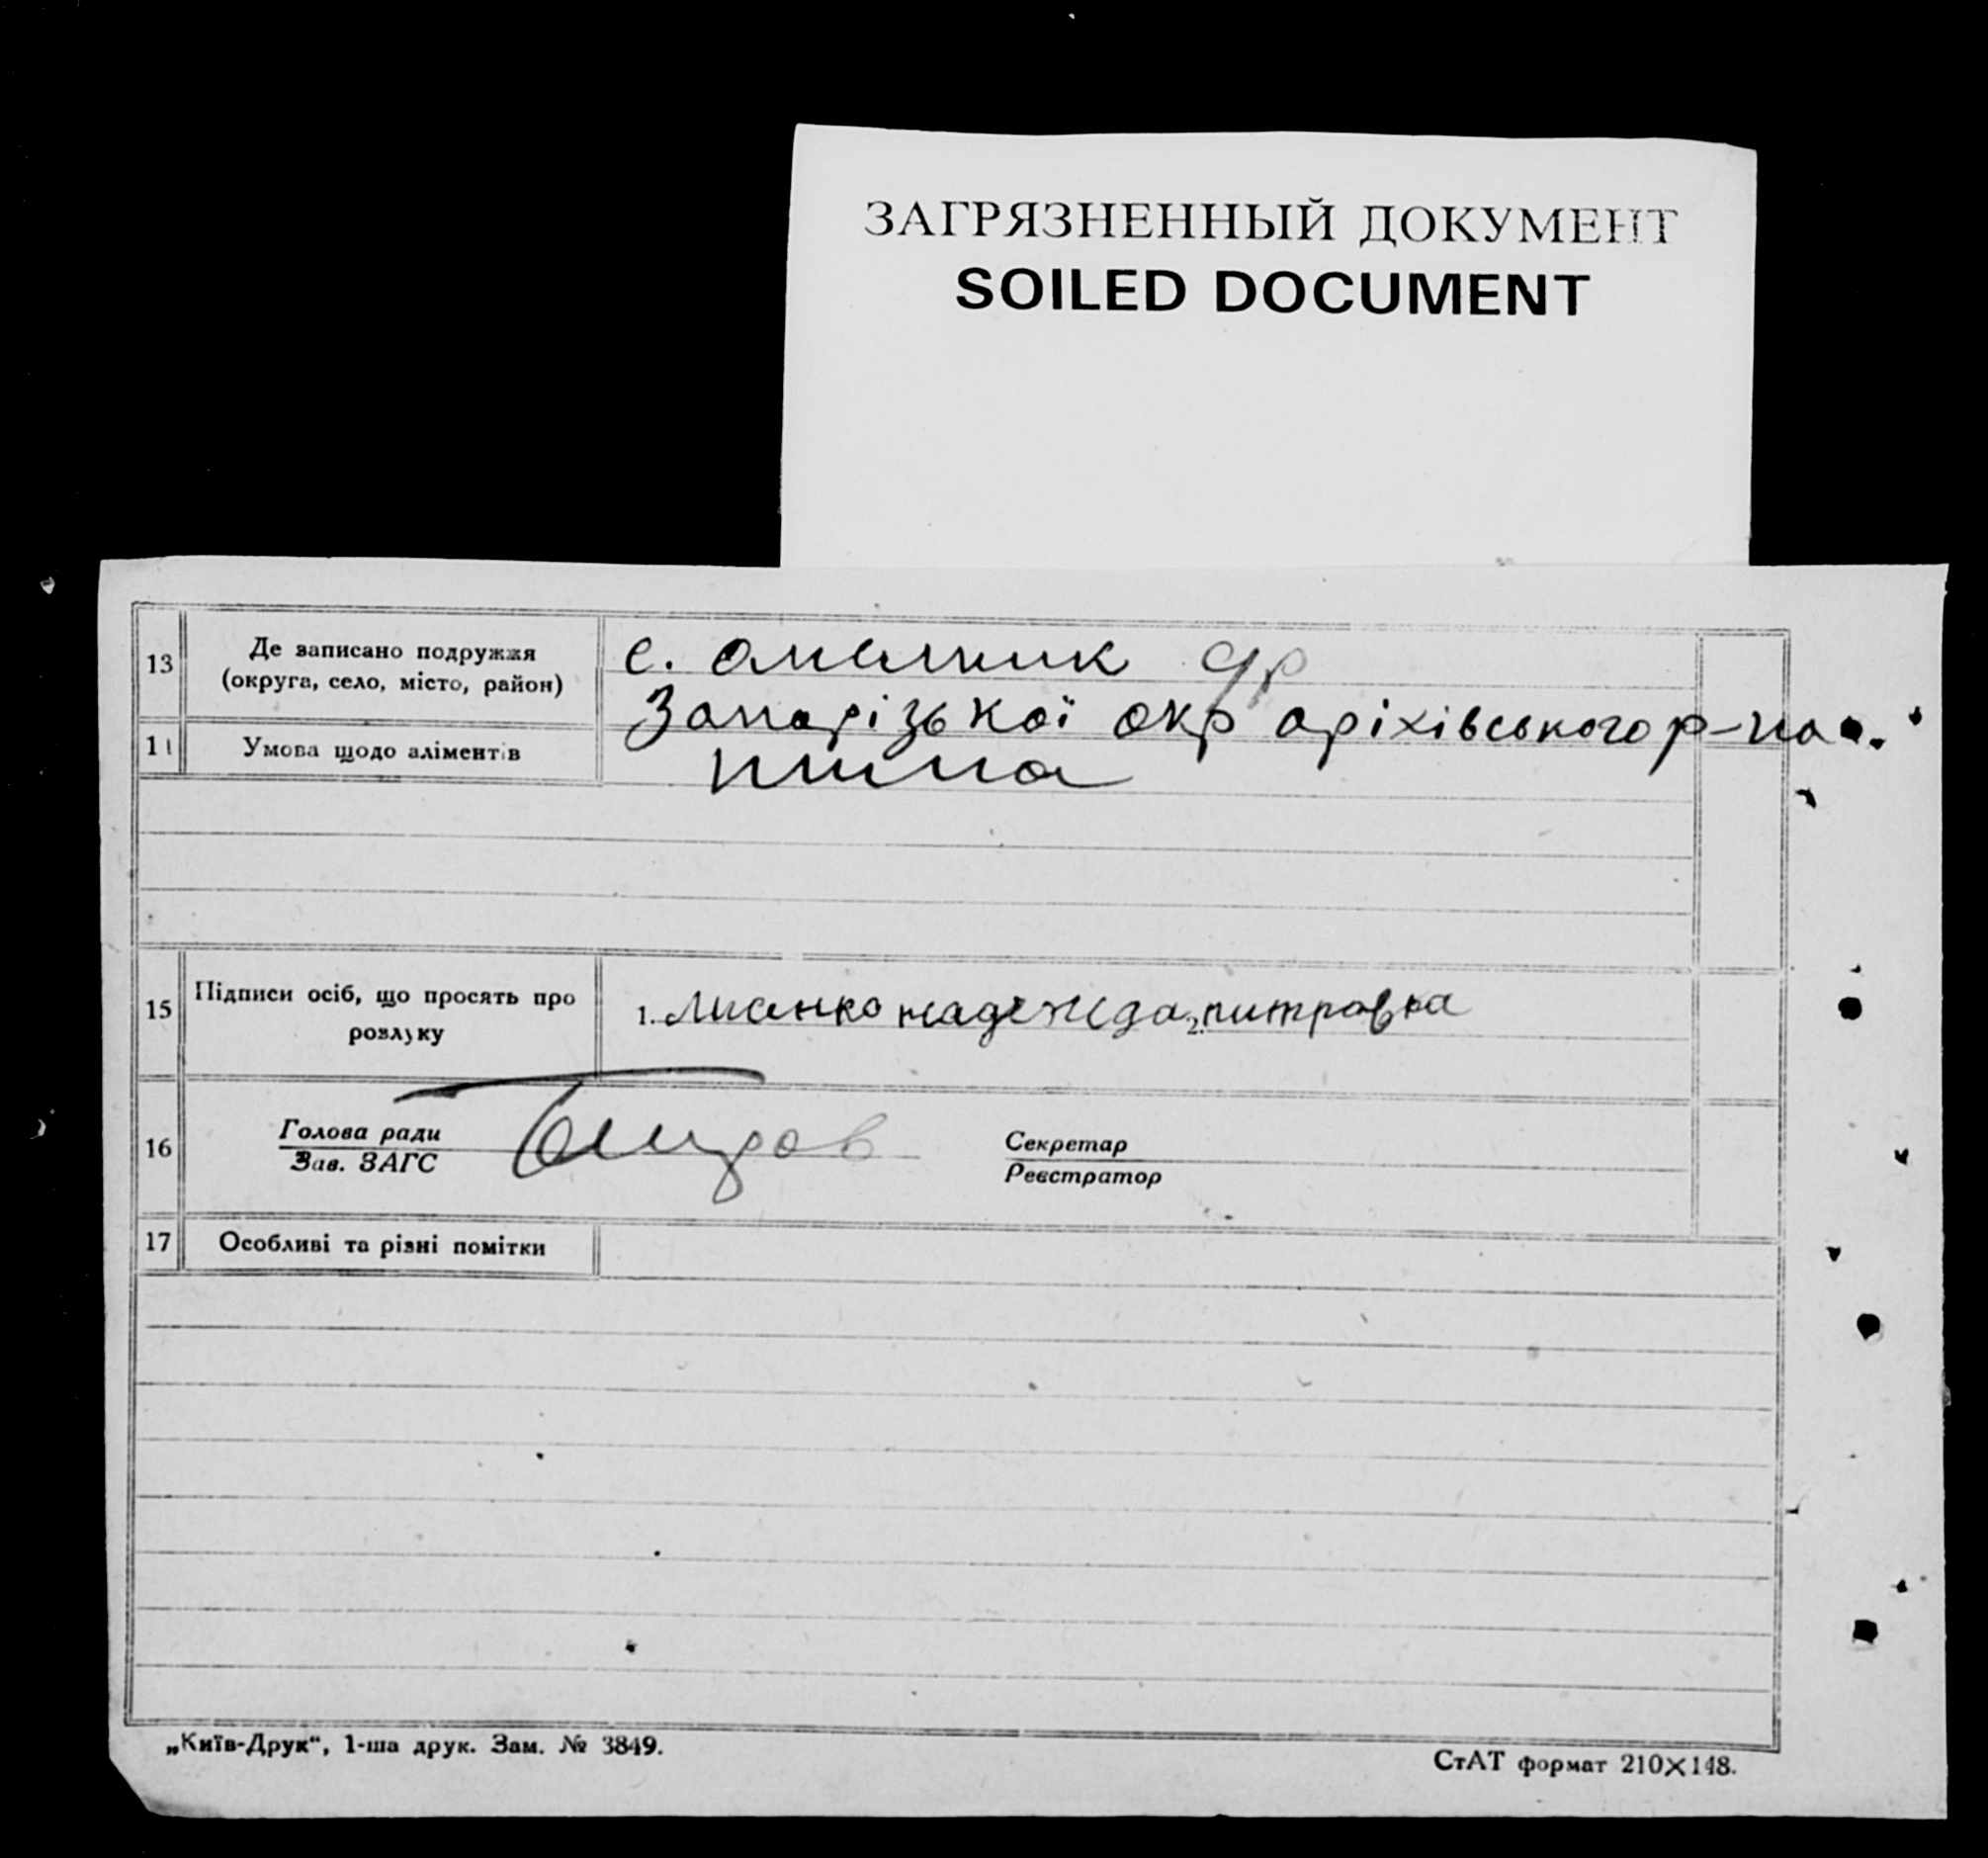 ЗАГРЯЗНЕННЫЙ ДОКУМЕНТ
SOILED DOCUMENT
13
Де записано подружжя
(округа, село, місто, район)
с. Омельник
Запорізької окр оріхівського р-на.
14
Умова щодо аліментів
нима
15
Підписи осіб, що просять про
розлуку
1. Лисенко надежда 2. питровна
16
Голова ради
Зав. ЗАГС
Секретар
Реєстратор
17
Особливі та різні помітки
„Київ-Друк“, 1-ша друк. Зам. № 3849.
СтАТ формат 210×148.